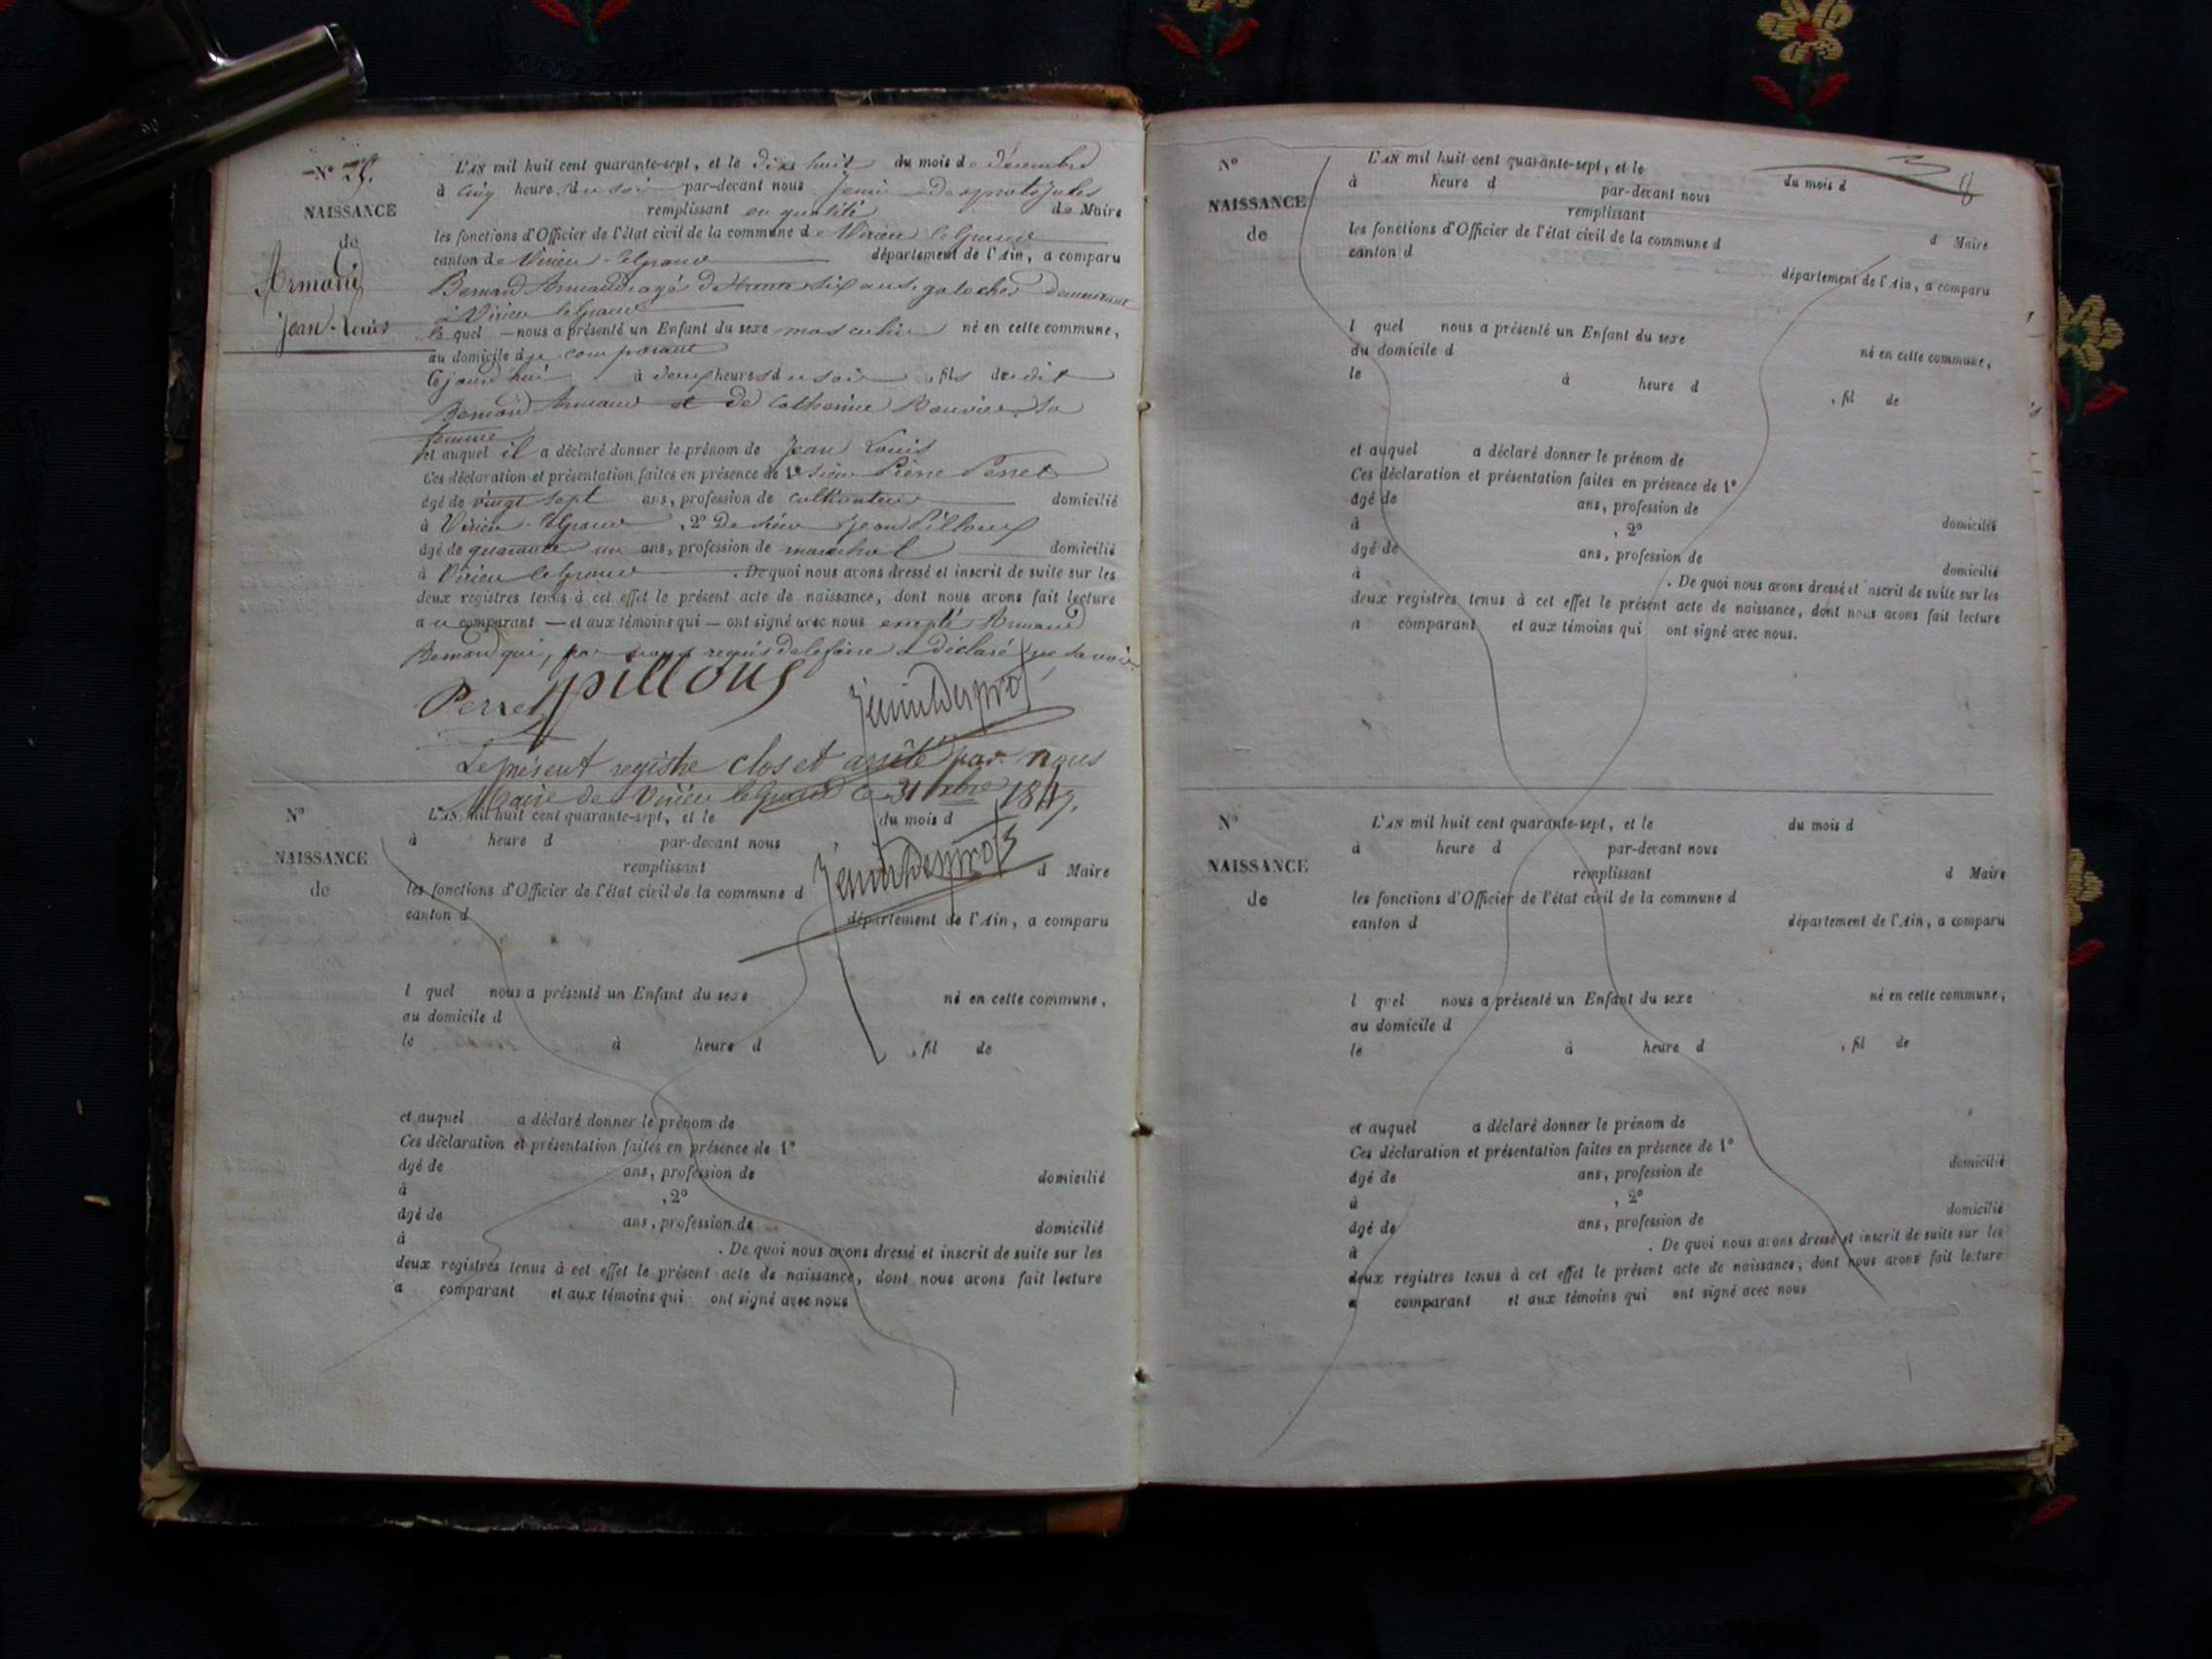 N°
NAISSANCE
de
Armand
Jean-Louis
L'AN mil huit cent quarante-sept, et le dix huit du mois de décembre
à cinq heure du soir par-devant nous Jenin Desprots Jules
remplissant en qualité de Maire
les fonctions d'Officier de l'état civil de la commune de Virieu le Grand
canton de Virieu-le grand département de l'Ain, a comparu
Armand agé de trente six ans, galocher demeurant
à Virieu le Grand
le quel nous a présenté un Enfant du sexe masculin né en cette commune,
au domicile du comparant
Cejourd'hui à heures du soir, fils dudit
Armand et de Catherine Bouvier sa
femme
et auquel il a déclaré donner le prénom de Jean Louis
Ces déclaration et présentation faites en présence de 1° sieur Pierre Perret
âgé de vingt sept ans, profession de cultivateur domicilié
à Virieu-le Grand, 2° de sieur Jean Pilloux
âgé de quarante un ans, profession de marechal domicilié
à Virieu le Grand. De quoi nous avons dressé et inscrit de suite sur les
deux registres tenus à cet effet le présent acte de naissance, dont nous avons fait lecture
au comparant et aux témoins qui ont signé avec nous excepté Armand
qui, par nous requis de le faire a déclaré ne savoir.
Perret pilloux
Le présent registre clos et arrêté par nous
Maire de Virieu le Grand le 31 xbre 1847.
N°
NAISSANCE
de
L'AN mil huit cent quarante-sept, et le du mois d
à heure d par-devant nous
remplissant d Maire
les fonctions d'Officier de l'état civil de la commune d
canton d département de l'Ain, a comparu
l quel nous a présenté un Enfant du sexe né en cette commune,
au domicile d
le à heure d , fil de
et auquel a déclaré donner le prénom de
Ces déclaration et présentation faites en présence de 1°
âgé de ans, profession de domicilié
à , 2°
âgé de ans, profession de domicilié
à . De quoi nous avons dressé et inscrit de suite sur les
deux registres tenus à cet effet le présent acte de naissance, dont nous avons fait lecture
a comparant et aux témoins qui ont signé avec nous
N°
NAISSANCE
de
L'AN mil huit cent quarante-sept, et le du mois d
à heure d par-devant nous
remplissant d Maire
les fonctions d'Officier de l'état civil de la commune d
canton d département de l'Ain, a comparu
l quel nous a présenté un Enfant du sexe né en cette commune,
au domicile d
le à heure d , fil de
et auquel a déclaré donner le prénom de
Ces déclaration et présentation faites en présence de 1°
âgé de ans, profession de domicilié
à , 2°
âgé de ans, profession de domicilié
à . De quoi nous avons dressé et inscrit de suite sur les
deux registres tenus à cet effet le présent acte de naissance, dont nous avons fait lecture
a comparant et aux témoins qui ont signé avec nous.
N°
NAISSANCE
de
L'AN mil huit cent quarante-sept, et le du mois d
à heure d par-devant nous
remplissant d Maire
les fonctions d'Officier de l'état civil de la commune d
canton d département de l'Ain, a comparu
l quel nous a présenté un Enfant du sexe né en cette commune,
au domicile d
le à heure d , fil de
et auquel a déclaré donner le prénom de
Ces déclaration et présentation faites en présence de 1°
âgé de ans, profession de domicilié
à , 2°
âgé de ans, profession de domicilié
à . De quoi nous avons dressé et inscrit de suite sur les
deux registres tenus à cet effet le présent acte de naissance, dont nous avons fait lecture
a comparant et aux témoins qui ont signé avec nous